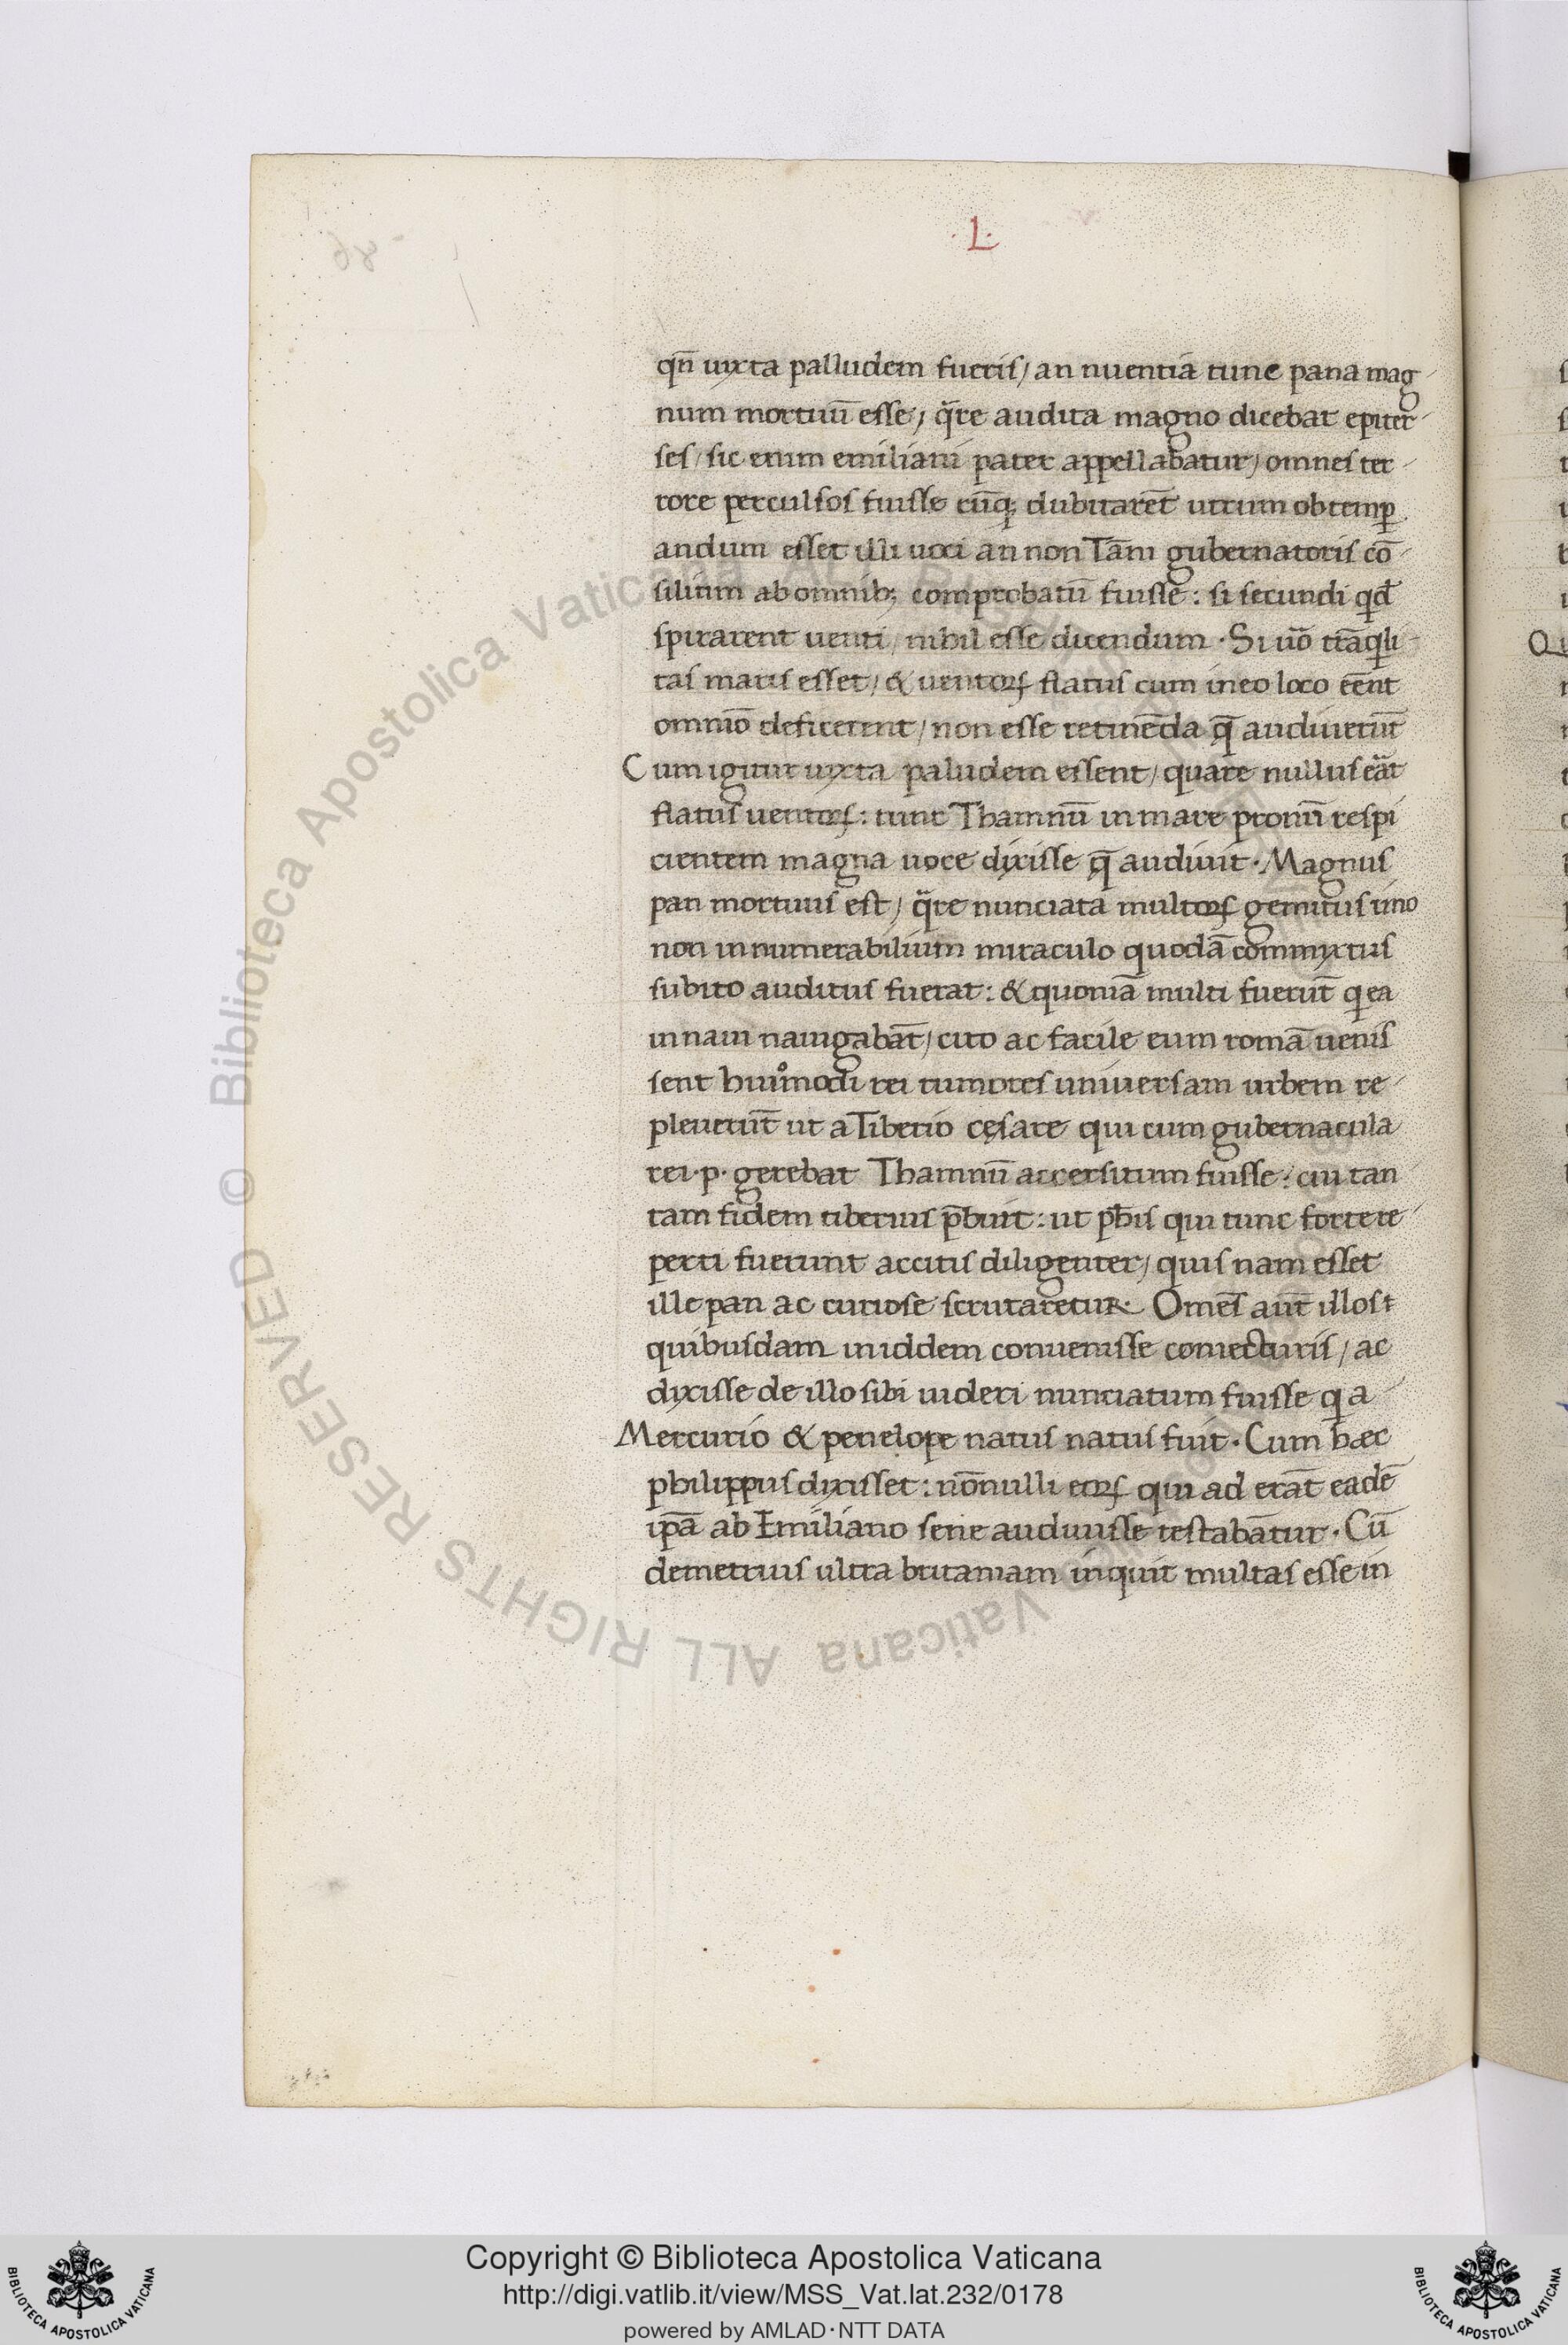 ·L·
qn̄ iuxta palludem fueris / an nuentia tune pana mag
num mortuū esse / q̄re audita magno dicebat epiter
ses / sic enim emiliani pater appellabatur / omnes ter
rore perculsos fuisse cūq; dubitarēt utrum obtemꝑ
andum esset illi uoci an non Tām gubernatoris cō
silium ab omnib; comprobatū fuisse : si secundi qd̄
spirarent uenti / nihil esse dicendum · Si uō trāqli
tas maris esset / & uentoꝝ flatus cum in eo loco eēnt
omnīo deficerent / non esse retinēda q̄ audiuerūt
Cum igitur iuxta paludem essent / quare nullus eāt
flatus uentoꝝ : tunt Thamnū in mare pronū respi
cientem magna uoce dixisse q̄ audiuit · Magnus
pan mortuus est / q̄re nunciata multoꝝ gemitus īmo
non innumerabilium miraculo quodā commixtus
subito auditus fuerat : & quoniā multi fuerūt q ea
in naui nauigabāt / cito ac facile eum romā uenis
sent huiᵒmodi rei rumores uniuersam urbem re
pleuerūt ut a Tiberio cęsare qui cum gubernacula
rei · p · gerebat Thamnū accersitum fuisse : cui tan
tam fidem tiberius p̄buit : ut ꝓbis qui tunc forte re
perti fuerunt accitis diligenter / quis nam esset
ille pan ac curiose scrutaretur · Omēs aūt illos t
quibusdam in iddem conuenisse coniecturis / ac
dixisse de illo sibi uideri nunciatum fuisse q a
Mercurio & penelope natus natus fuit · Cum hæc
philippus dixisset : nōnulli eoꝝ qui ad erāt eadē
ipā ab Emiliano sene audiuisse testabātur · Cū
demetrius ultra britaniam inquit multas esse in
© Biblioteca Apostolica Vaticana ALL RIGHTS RESERVED
Copyright © Biblioteca Apostolica Vaticana
http://digi.vatlib.it/view/MSS_Vat.lat.232/0178
powered by AMLAD·NTT DATA
BIBLIOTECA APOSTOLICA VATICANA
BIBLIOTECA APOSTOLICA VATICANA